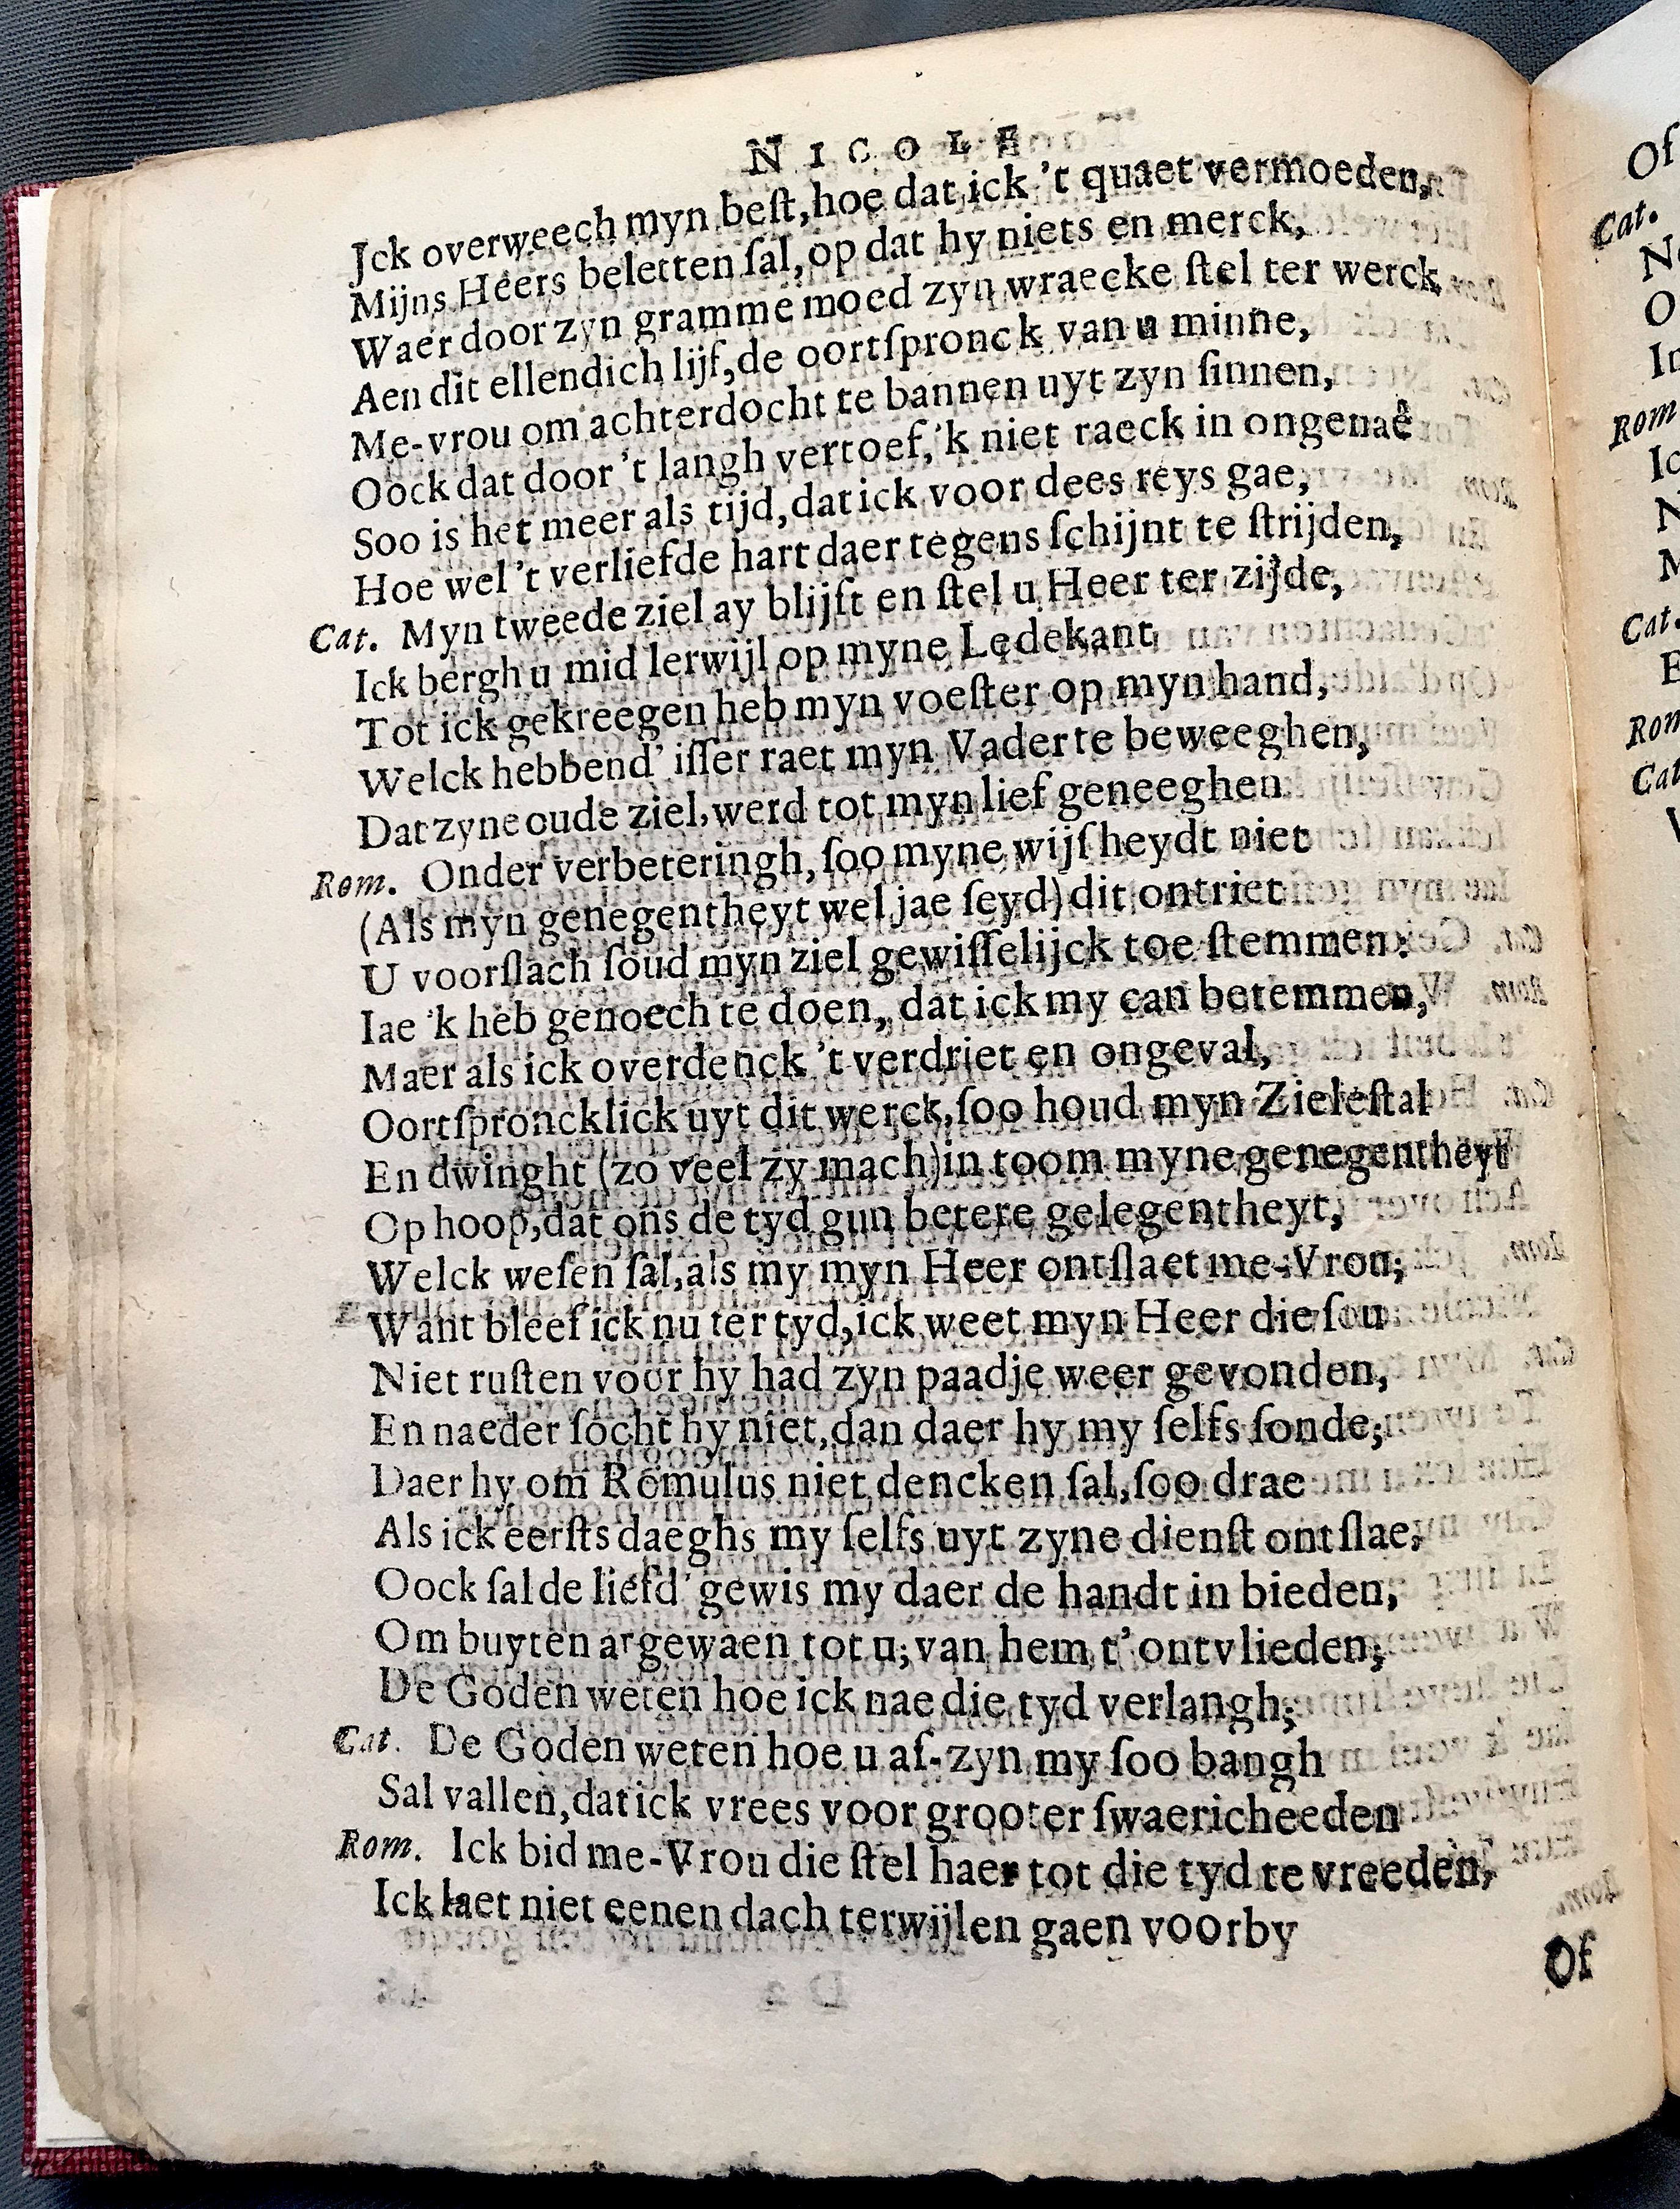 NICOLE
Jck overweech myn beſt, hoe dat ick 't quaet vermoeden,
Mijns Heers beletten ſal, op dat hy niets en merck,
Waer door zyn gramme moed zyn wraecke ſtel ter werck
Aen dit ellendich lijf, de oortſpronck van u minne,
Me-vrou om achterdocht te bannen uyt zyn ſinnen,
Oock dat door 't langh vertoef, 'k niet raeck in ongenaê
Soo is het meer als tijd, dat ick voor dees reys gae,
Hoe wel 't verliefde hart daer tegens ſchijnt te ſtrijden,
Cat. Myn tweede ziel ay blijft en ſtel u Heer ter zijde,
Ick bergh u mid lerwijl op myne Ledekant
Tot ick gekreegen heb myn voeſter op myn hand,
Welck hebbend' iſſer raet myn Vader te beweeghen,
Dat zyne oude ziel, werd tot myn lief geneeghen
Rom. Onder verbeteringh, ſoo myne wijſheydt niet
(Als myn genegentheyt wel jae ſeyd) dit ontriet
U voorſlach ſoud myn ziel gewiſſelijck toe ſtemmen:
Iae 'k heb genoech te doen, dat ick my can betemmen,
Maer als ick overdenck 't verdriet en ongeval,
Oortſproncklick uyt dit werck, ſoo houd myn Zieleſtal
En dwinght (zo veel zy mach) in toom myne genegentheyt
Op hoop, dat ons de tyd gun betere gelegentheyt,
Welck weſen ſal, als my myn Heer ontſlaet me-Vrou;
Want bleef ick nu ter tyd, ick weet myn Heer die ſou
Niet ruſten voor hy had zyn paadje weer gevonden,
En naeder ſocht hy niet, dan daer hy my ſelfs ſonde;
Daer hy om Romulus niet dencken ſal, ſoo drae
Als ick eerſts daeghs my ſelfs uyt zyne dienſt ontſlae,
Oock ſal de liefd' gewis my daer de handt in bieden,
Om buyten argewaen tot u; van hem t' ontvlieden;
De Goden weten hoe ick nae die tyd verlangh;
Cat. De Goden weten hoe u af-zyn my ſoo bangh
Sal vallen, dat ick vrees voor grooter ſwaericheeden
Rom. Ick bid me-Vrou die ſtel haer tot die tyd te vreeden,
Ick laet niet eenen dach terwijlen gaen voorby
Of
Of
Cat.
Rom
Cat.
Rom
Cat